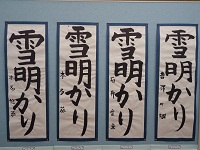 雪明かり
雪明かり
雪明かり
雪明かり